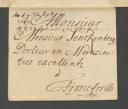 Monsieur
Monsieur Senckenberg
Docteur en Medecine
tres excellent
à
Francforth